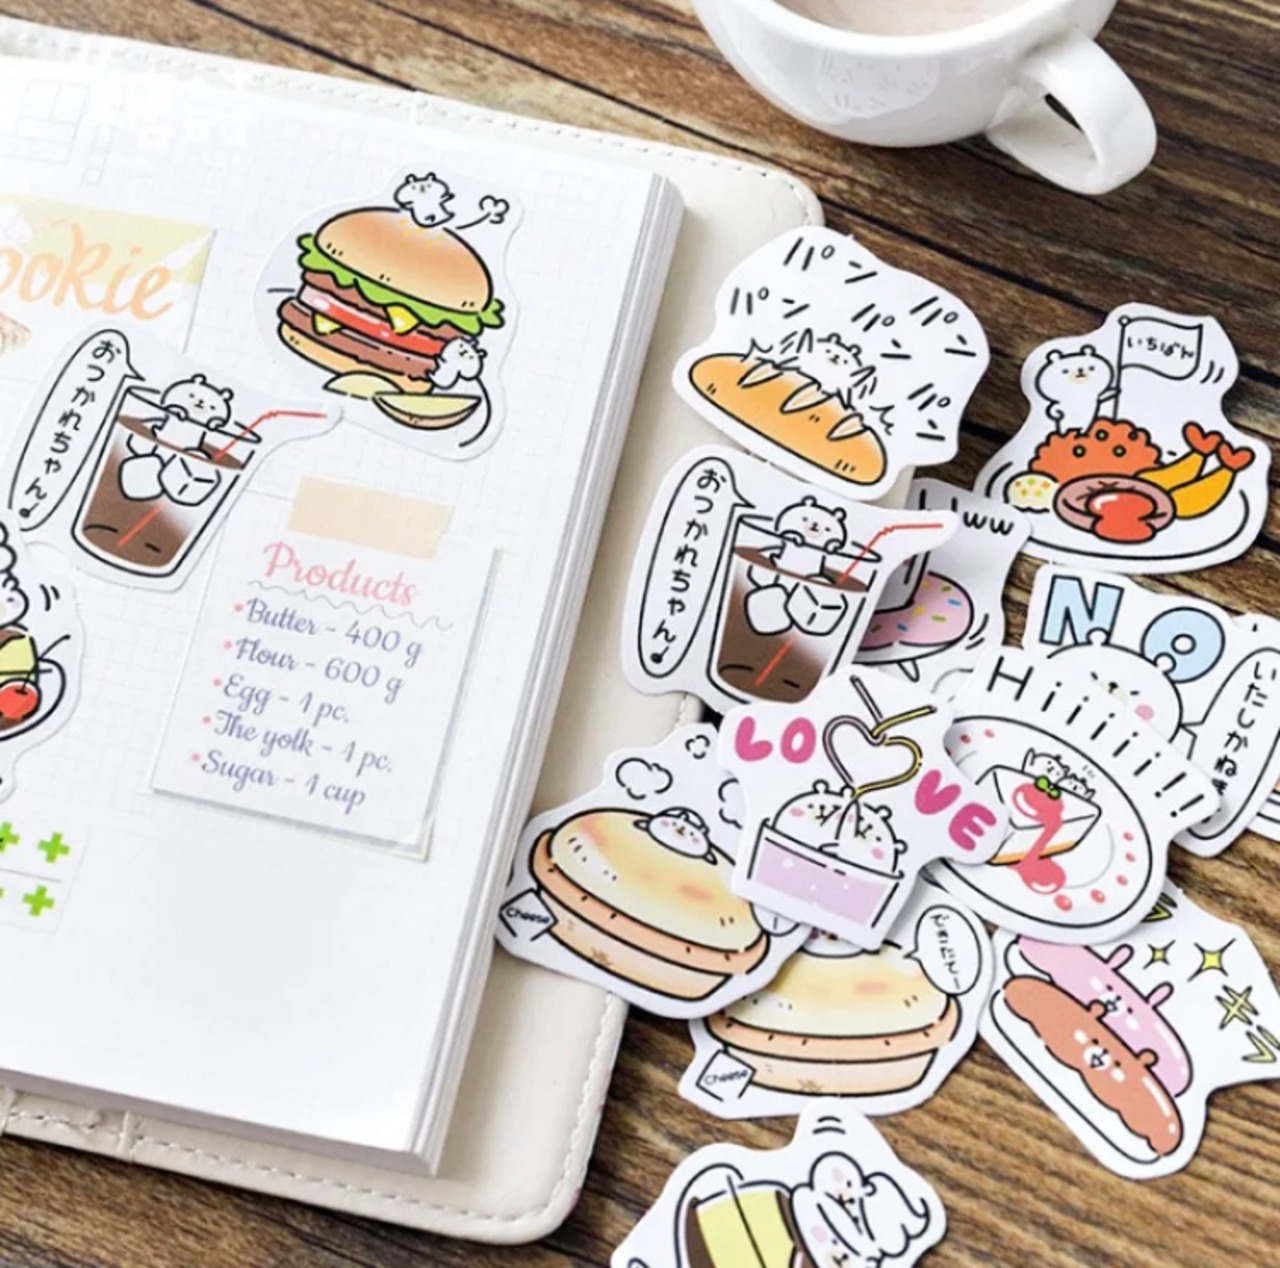 おつかれちゃん♪
Products
Butter - 400 g
Flour - 600 g
Egg - 1 pc.
The yolk - 1 pc.
Sugar - 1 cup
パン
パン
パン
パン
パン
パン
いちばん
おつかれちゃん♪
ww
NO
Hiiiii!!
いたしかねま
LOVE
Cheese
できたてー
Cheese
キラ